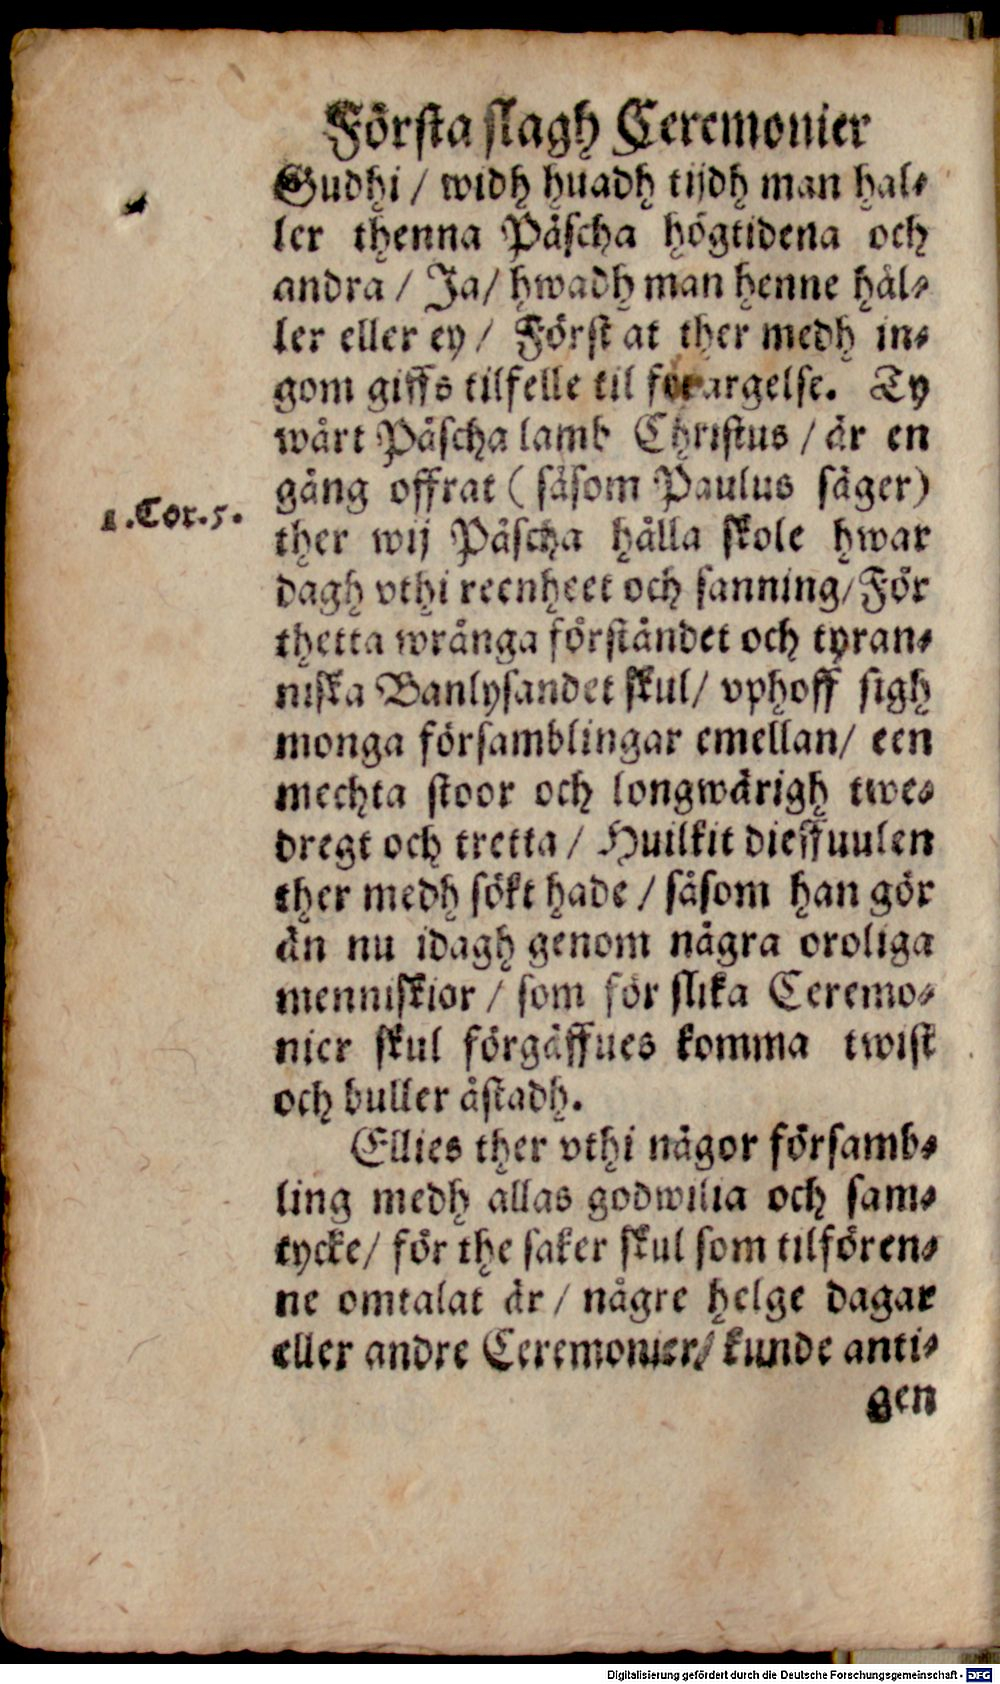 Första slagh Ceremonier
Gudhi / widh huadh tijdh man hal⸗
ler thenna Påscha högtidena och
andra / Ja / hwadh man henne hål⸗
ler eller ey / Först at ther medh in⸗
gom giffs tilfelle til förargelse. Ty
wårt Påscha lamb Christus / är en
gång offrat ( såsom Paulus säger)
1.Cor.5.
ther wij Påscha hålla skole hwar
dagh vthi reenheet och sanning / För
thetta wrånga förståndet och tyran⸗
niska Banlysandet skul / vphoff sigh
monga församblingar emellan / een
mechta stoor och longwårigh twe⸗
dregt och tretta / Huilkit dieffuulen
ther medh sökt hade / såsom han gör
än nu idagh genom några oroliga
menniskior / som för slika Ceremo⸗
nier skul förgäffues komma twist
och buller åstadh.
Ellies ther vthi någor församb⸗
ling medh allas godwilia och sam⸗
tycke / för the saker skul som tilfören⸗
ne omtalat är / någre helge dagar
eller andre Ceremonier / kunde anti⸗
gen
Digitalisierung gefördert durch die Deutsche Forschungsgemeinschaft - DFG